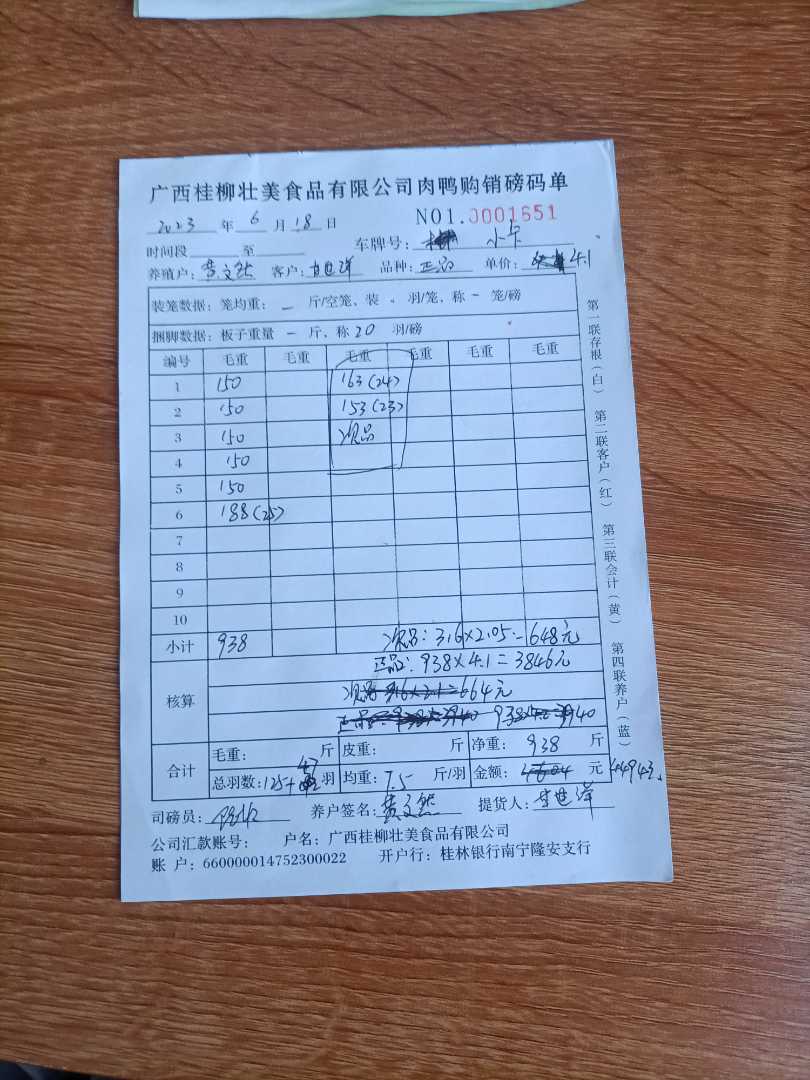 广西桂柳壮美食品有限公司肉鸭购销磅码单
2023 年 6 月 18 日 NO1.0001651
时间段 至 车牌号: 小车
养殖户: 黄文然 客户: 甘世洋 品种: 正品 单价: 4.1
装笼数据: 笼均重: — 斤/空笼、装 羽/笼、称 — 笼/磅
捆脚数据: 板子重量 — 斤、称 20 羽/磅
编号 毛重 毛重 毛重 毛重 毛重 毛重
1 150 163(24)
2 150 153(23)
3 150 次品
4 150
5 150
6 188(25)
7
8
9
10
小计 938 次品: 316×2.05=648元
核算 正品: 938×4.1=3846元
次品 316×2.1=664元
938 3940
合计 毛重: 斤 皮重: 斤 净重: 938 斤
总羽数: 125+47 羽 均重: 7.5 斤/羽 金额: 4604 元 4494元
司磅员: 养户签名: 黄文然 提货人: 甘世洋
公司汇款账号: 户名: 广西桂柳壮美食品有限公司
账 户: 660000014752300022 开户行: 桂林银行南宁隆安支行
第一联存根(白) 第二联客户(红) 第三联会计(黄) 第四联养户(蓝)